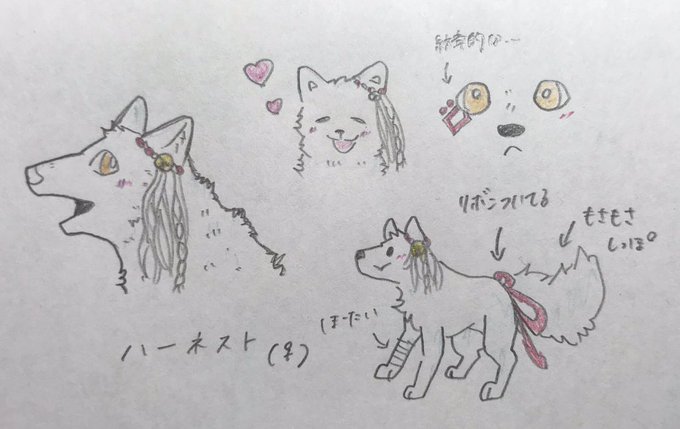 紋章的な…
リボンついてる
もさもさ
しっぽ
ほーたい
ハーネスト